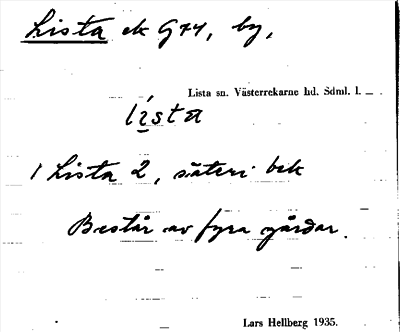 Lista ek G74, by,
Lista sn. Västerrekarne hd. Sdml. l.
lista
1 Lista 2, säteri bek
Består av fyra gårdar.
Lars Hellberg 1935.